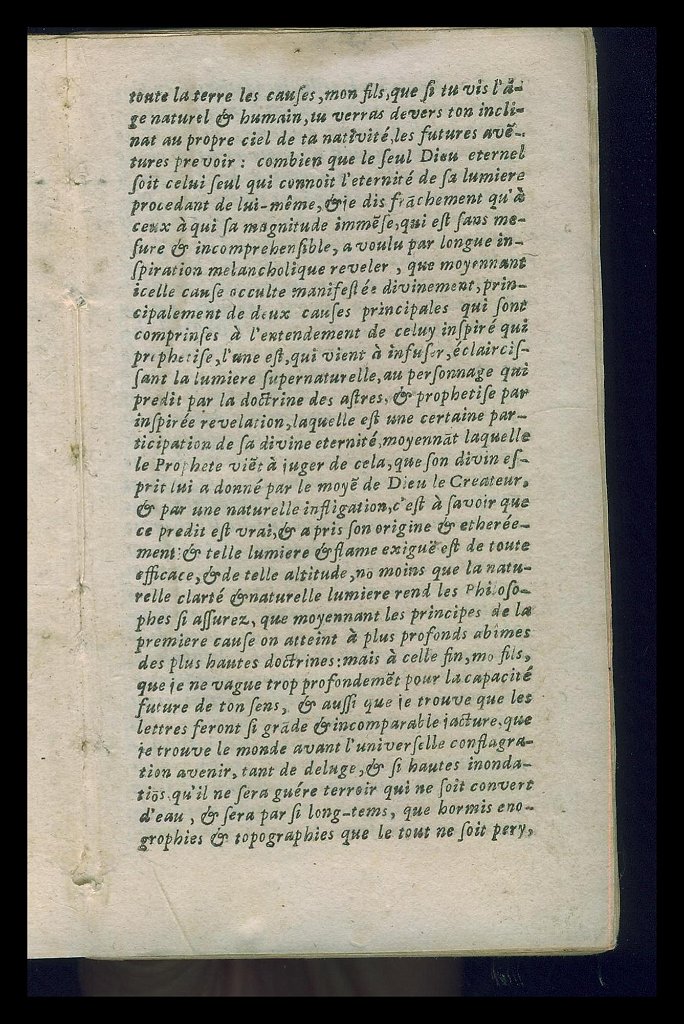 toute la terre les causes, mon fils, que si tu vis l'â-
ge naturel & humain, tu verras devers ton incli-
nat au propre ciel de ta nativité, les futures avē-
tures prevoir : combien que le seul Dieu eternel
soit celui seul qui connoit l'eternité de sa lumiere
procedant de lui-même, & je dis frāchement qu'à
ceux à qui sa magnitude immēse, qui est sans me-
sure & incomprehensible, a voulu par longue in-
spiration melancholique reveler, que moyennant
icelle cause occulte manifestée divinement, prin-
cipalement de deux causes principales qui sont
comprinses à l'entendement de celuy inspiré qui
prophetise, l'une est, qui vient à infuser, éclaircis-
sant la lumiere supernaturelle, au personnage qui
predit par la doctrine des astres, & prophetise par
inspirée revelation, laquelle est une certaine par-
ticipation de sa divine eternité, moyennāt laquelle
le Prophete viēt à juger de cela, que son divin es-
prit lui a donné par le moyē de Dieu le Createur,
& par une naturelle instigation, c'est à savoir que
ce predit est vrai, & a pris son origine & etherée-
ment: & telle lumiere & flame exiguë est de toute
efficace, & de telle altitude, no moins que la natu-
relle clarté & naturelle lumiere rend les Philoso-
phes si assurez, que moyennant les principes de la
premiere cause on atteint à plus profonds abimes
des plus hautes doctrines: mais à celle fin, mo fils,
que je ne vague trop profondemēt pour la capacité
future de ton sens, & aussi que je trouve que les
lettres feront si grāde & incomparable jacture, que
je trouve le monde avant l'universelle conflagra-
tion avenir, tant de deluge, & si hautes inonda-
tiōs, qu'il ne sera guére terroir qui ne soit convert
d'eau, & sera par si long-tems, que hormis eno-
grophies & topographies que le tout ne soit pery,